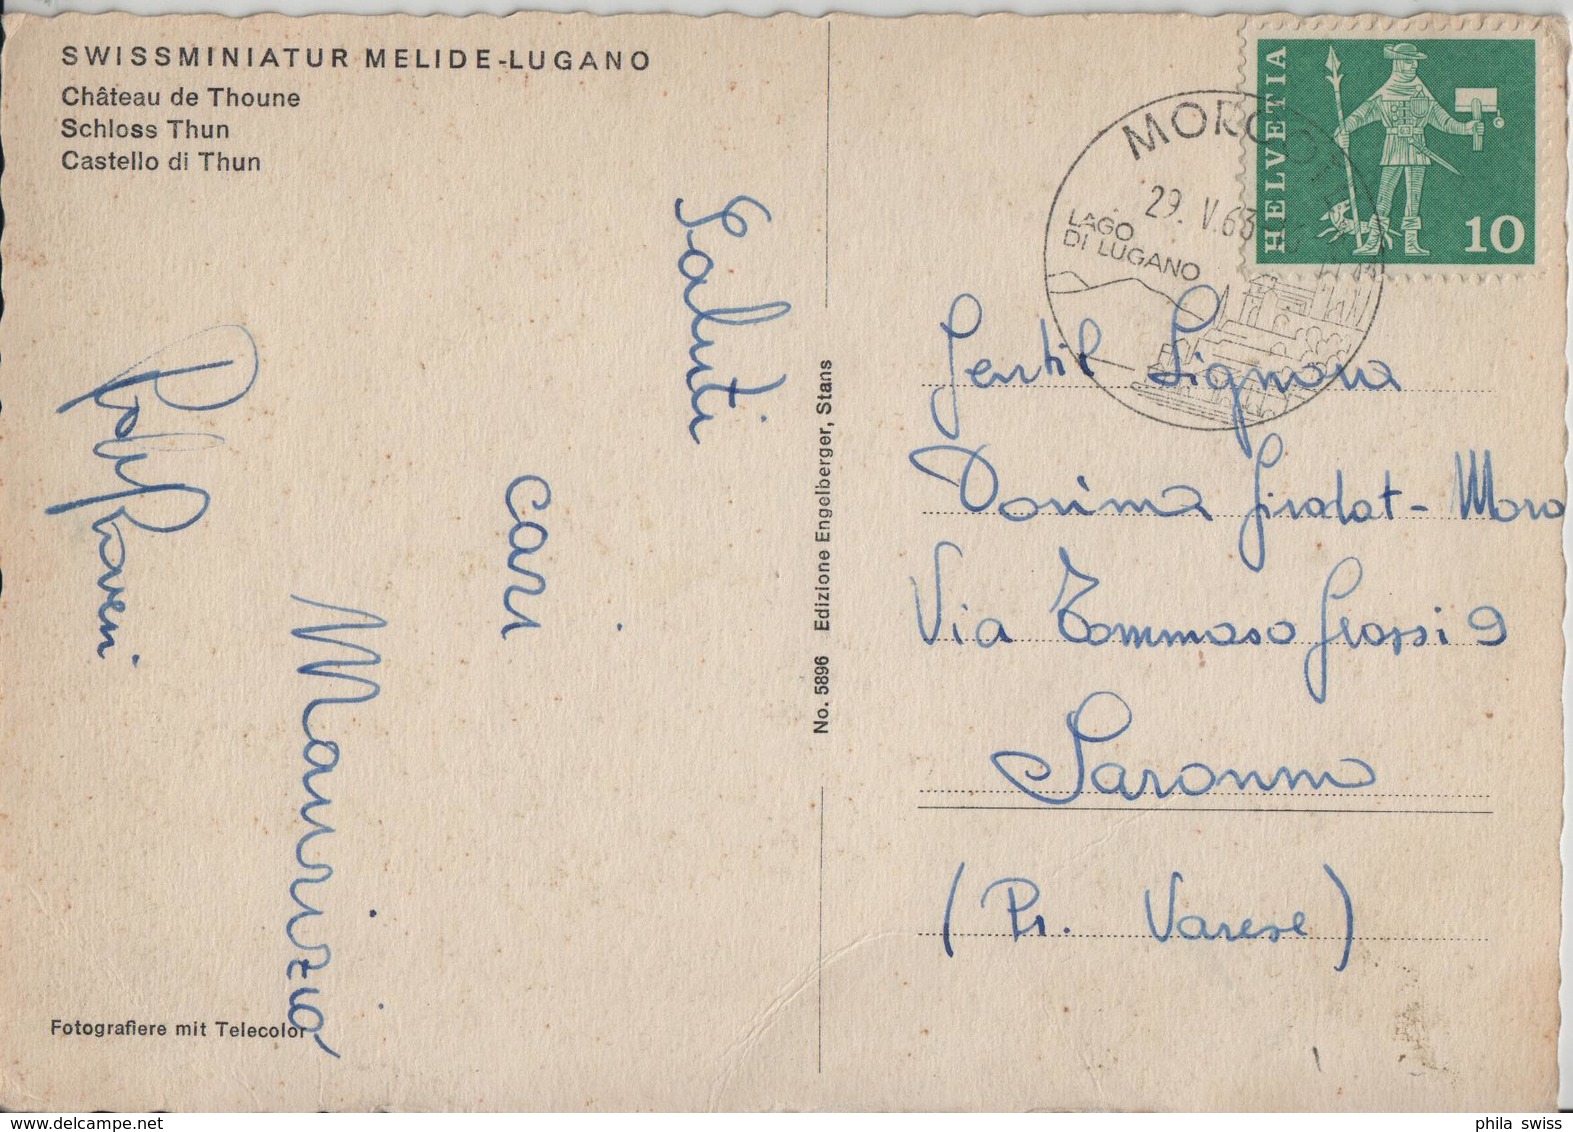 SWISSMINIATUR MELIDE-LUGANO
Château de Thoune
Schloss Thun
Castello di Thun
Saluti
cari
Maurizio
Raveni
Fotografiere mit Telecolor
No. 5896 Edizione Engelberger, Stans
HELVETIA
10
MORCOTE
29. V. 63
LAGO
DI LUGANO
Gentil Signora
Dorina Giradat - Moro
Via Tommaso Grossi 9
Saronno
(Pr. Varese)
phila swiss